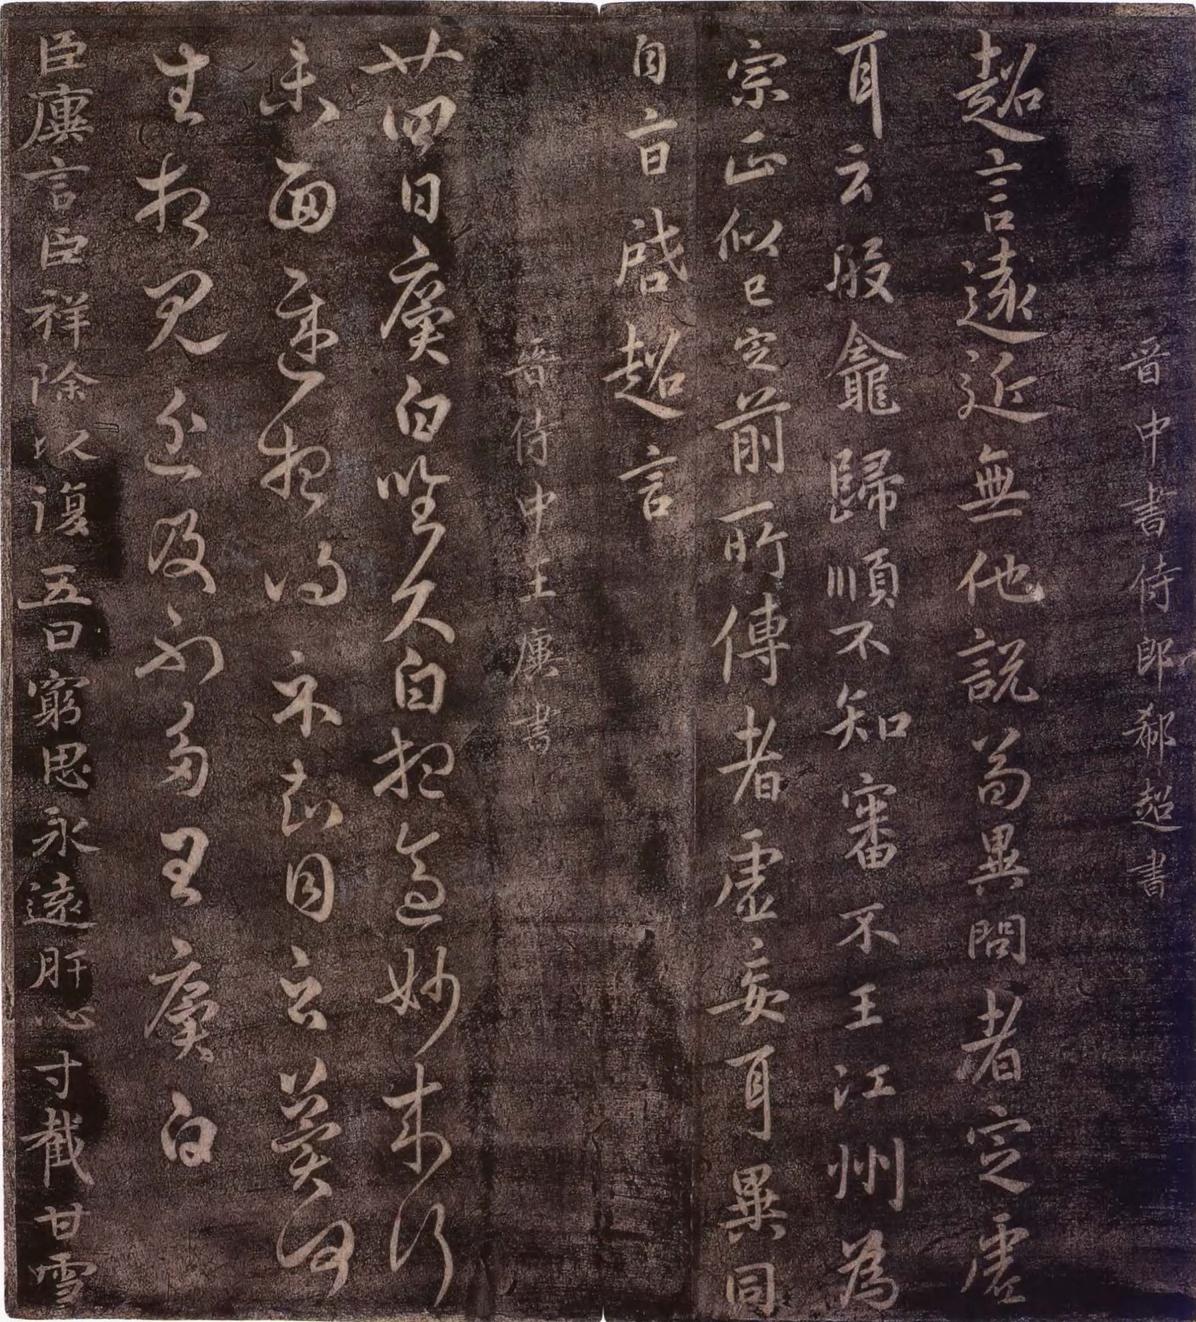 晉中書侍郎郗超書
超言遠近無他說荀異問者定虛
耳云段龕歸順不知審不王江州為
宗正似已定前所傳者虛妄耳異同
自言啓超言
晉侍中王廙書
廿四日廙白昨久白想適妙來行
未面遲想得示知目云
生相見近及不多王廙白
臣廙言臣祥除以復五日窮思永遠肝心寸截甘雪